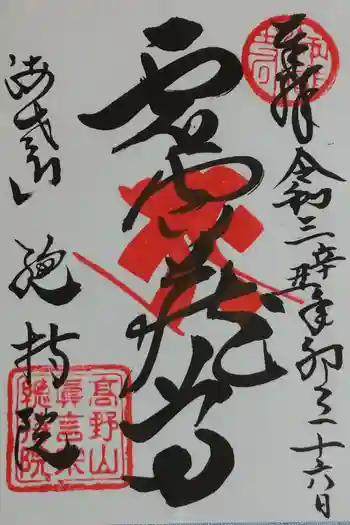 奉拝
令和三辛丑年卯 十六日
虚空蔵尊
山 總持院
高野山
眞言宗
總持院